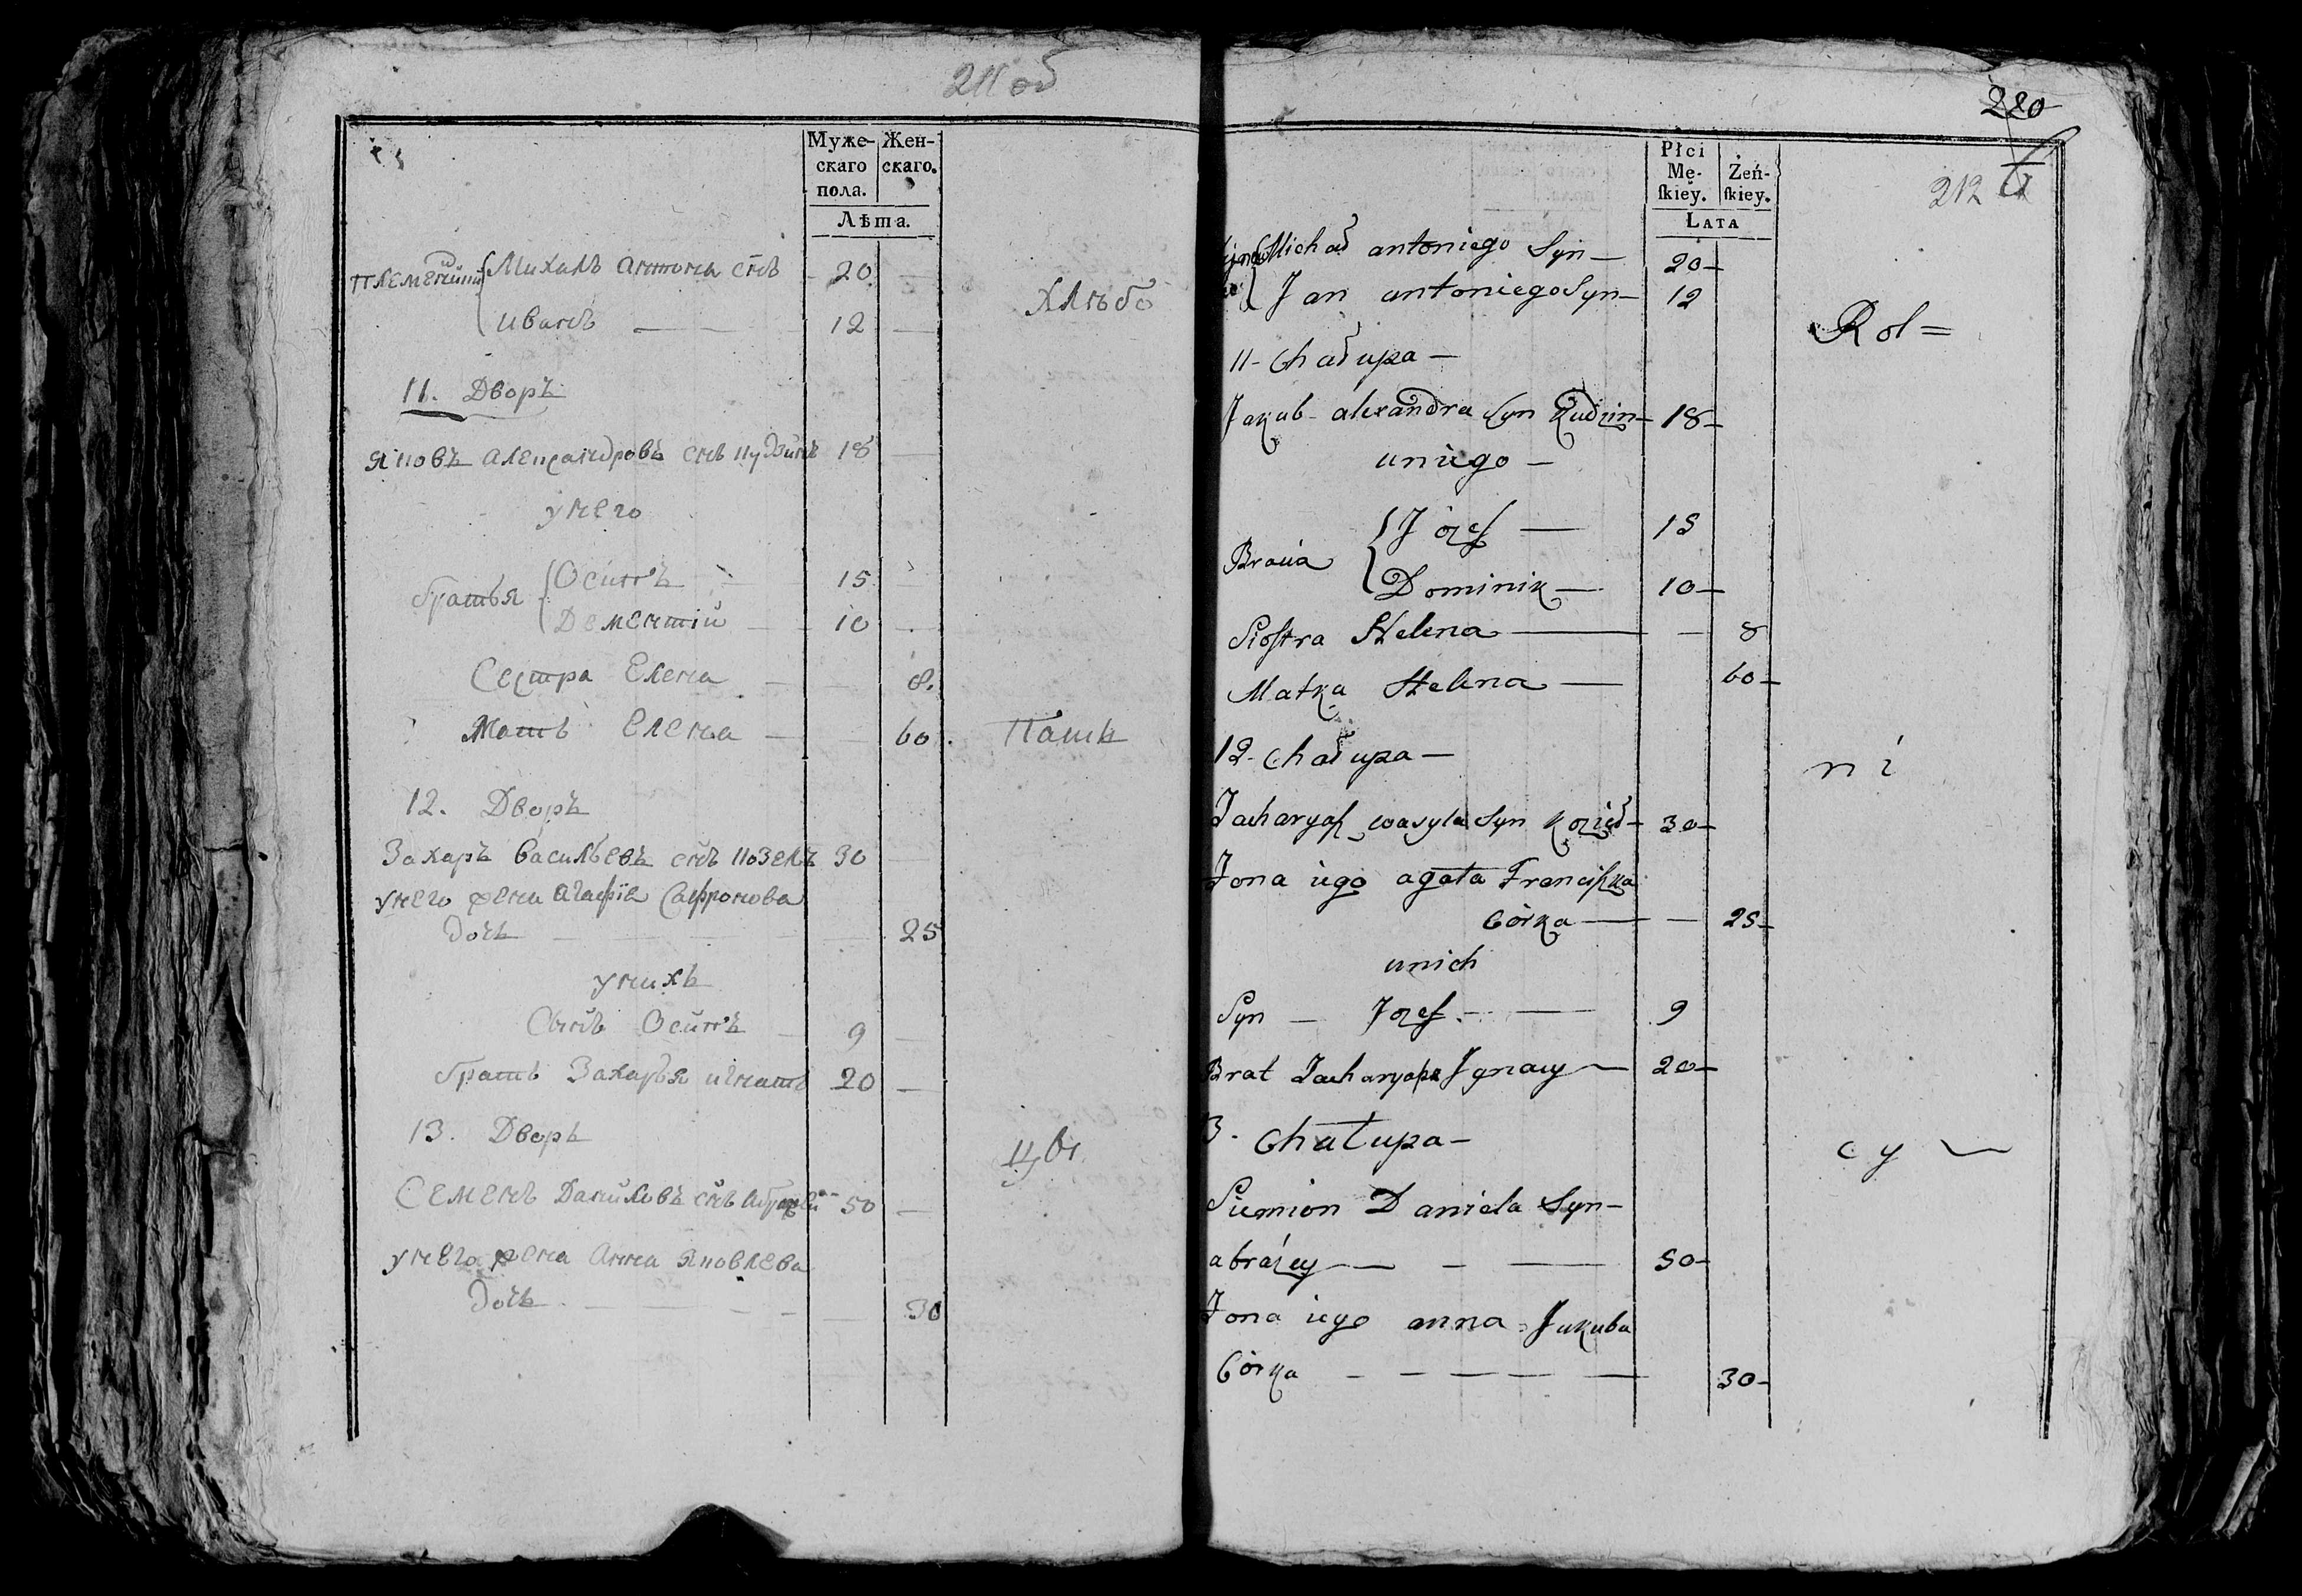 211 об
Муже-
скаго
пола.
Жен-
скаго.
Лѣта.
племянники
Михалъ Антона снъ — 20 —
Иванъ — — 12 —
Хлѣбо
11. Дворъ
Яковъ Александровъ снъ Кудзинъ 18 —
у него
братья
Осипъ — 15 —
Дементій — 10 —
Сестра Елена — — 8.
Мать Елена — — 60.
Паш
12. Дворъ
Захаръ Васильевъ снъ Козелъ 30 —
у него жена Агафія Сафронова
дочь — — — 25
у нихъ
Сынъ Осипъ — 9 —
братъ Захарья Игнатъ 20 —
13. Дворъ
Семенъ Даниловъ снъ 50 —
у него жена Анна Яковлева
дочь — — — 30
цы
220
212
Płci
Mę-
ſkiey.
Żeń-
ſkiey.
LATA
Michał antoniego Syn — 20 —
Jan antoniego Syn — 12
Rol=
11 - Chałupa —
Jakub alexandra Syn Kudzin — 18 —
uniego —
Bracia
Jozef — 15
Dominik — 10 —
Sioſtra Helena — — 8
Matka Helena — 60 —
12 - Chałupa —
ni
Zacharyaſz wasyla Syn Kozieł — 30 —
Zona iego agata Franciſzka
Córka — — 25 —
unich
Syn — Jozef — 9
Brat Zacharyaſza Jgnacy — 20 —
3 - Chałupa —
cy —
Siemion Daniela Syn —
abrazey — — — 50 —
Zona iego anna Jakuba
Córka — — — — — 30 —